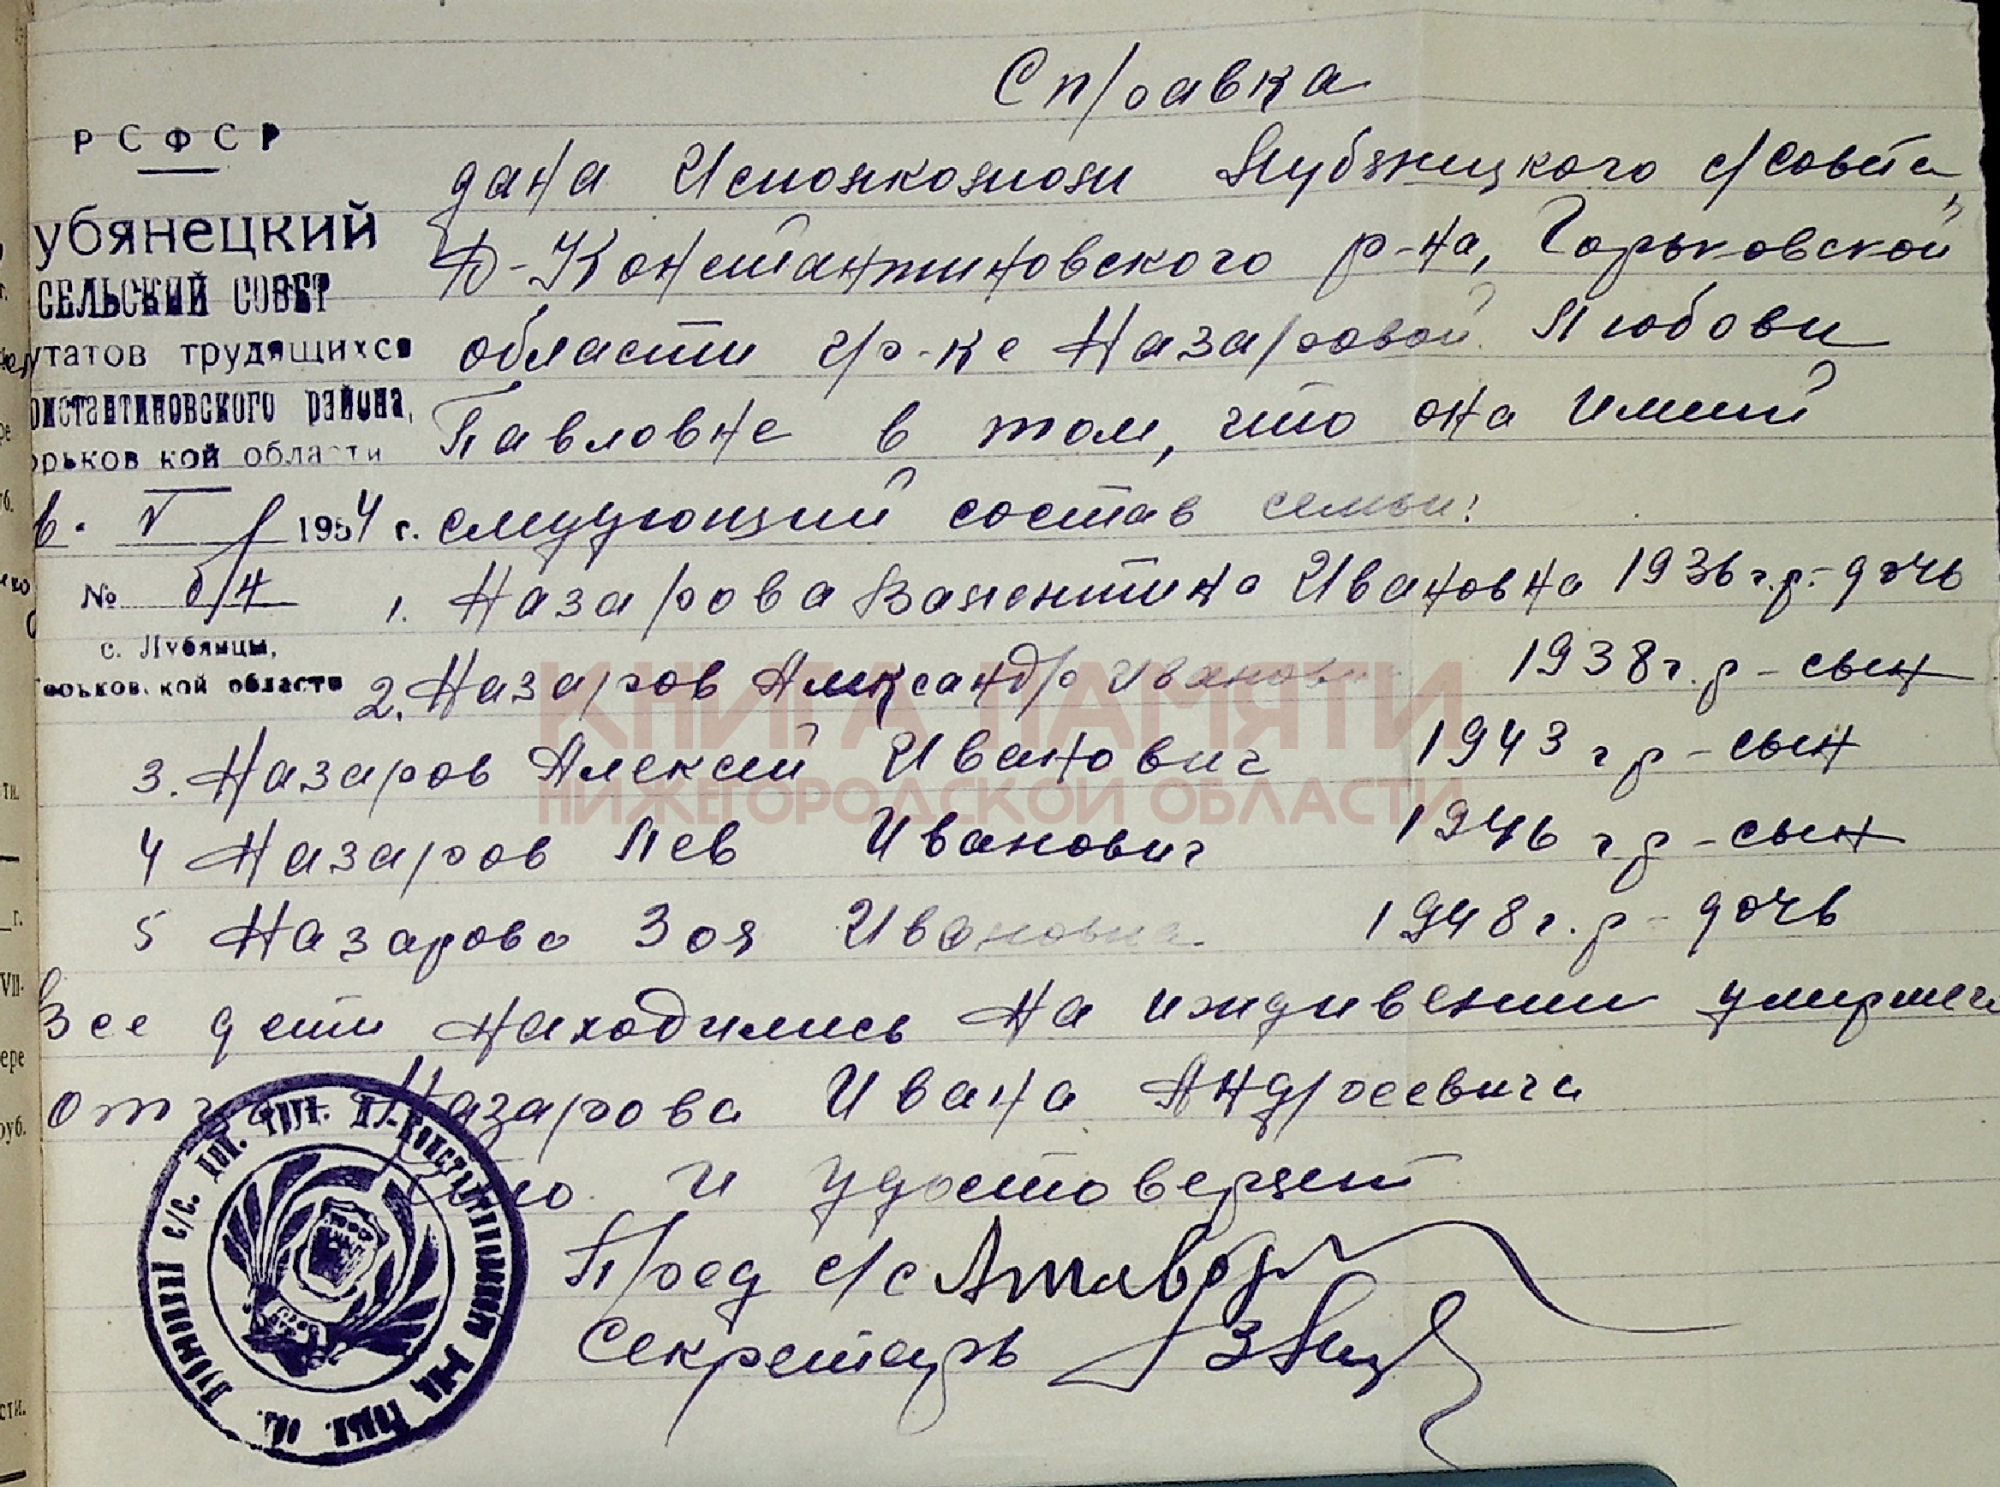 Справка
РСФСР
убянецкий
СЕЛЬСКИЙ СОВЕТ
утатов трудящихся
онстантиновского района,
орьков кой области
6. V 1954 г.
№ б/н
с. Лубянцы,
Горьков.кой области
дана Исполкомом Лубянецкого с/совета,
Д-Константиновского р-на, Горьковской
области гр-ке Назаровой Любови
Павловне в том, что она имеит
следующий состав семьи:
1. Назарова Валентина Ивановна 1936 г.р. - дочь
2. Назаров Александр Иванови 1938 г.р - сын
3. Назаров Алексей Иванович 1943 г р - сын
4 Назаров Лев Иванович 1946 г р - сын
5 Назарова Зоя Ивановна 1948 г.р - дочь
Все дети находились на иждивении умершего
отца Назарова Ивана Андреевича
что и удостоверяет
Пред с/с
Секретарь
КНИГА ПАМЯТИ
НИЖЕГОРОДСКОЙ ОБЛАСТИ